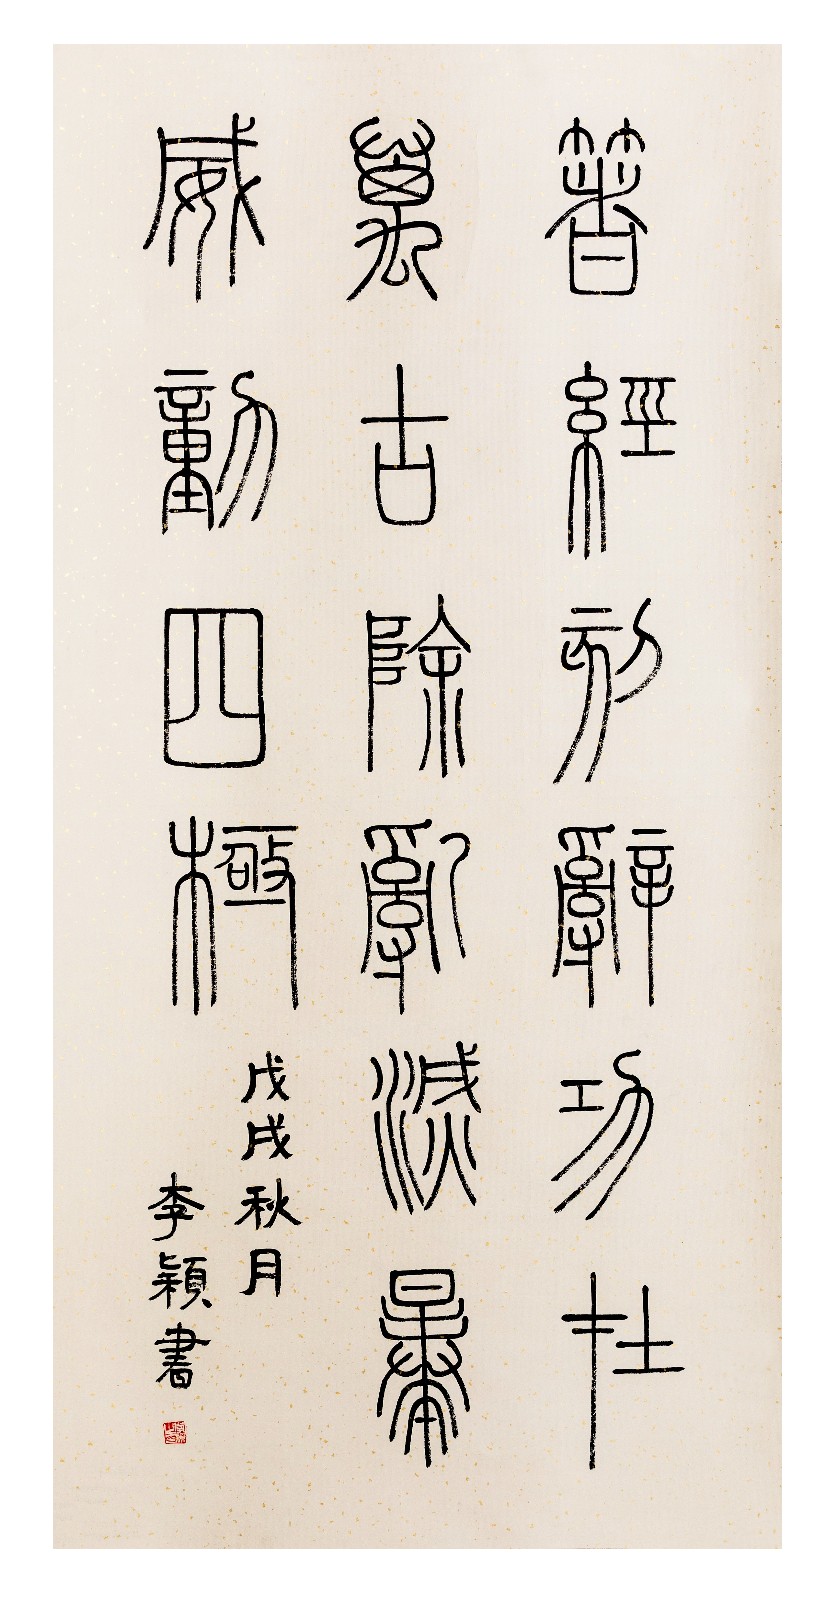 箸經刻辭功在
萬古除亂滅暴
威動四極
戊戌秋月
李穎書